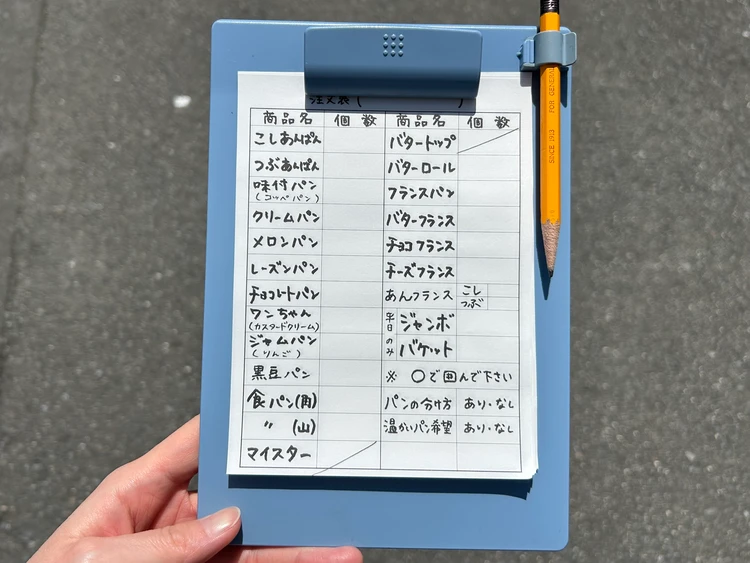 注文表(          )
商品名 個数 商品名 個数
こしあんぱん バタートップ
つぶあんぱん バターロール
味付パン フランスパン
(コッペパン)
クリームパン バターフランス
メロンパン チョコフランス
レーズンパン チーズフランス
チョコレートパン あんフランス こし
つぶ
ワンちゃん 平日のみ ジャンボ
(カスタードクリーム)
ジャムパン バケット
(りんご)
黒豆パン ※ ○で囲んで下さい
食パン(角) パンの分け方 あり・なし
〃 (山) 温かいパン希望 あり・なし
マイスター
SINCE 1913 FOR GENERAL